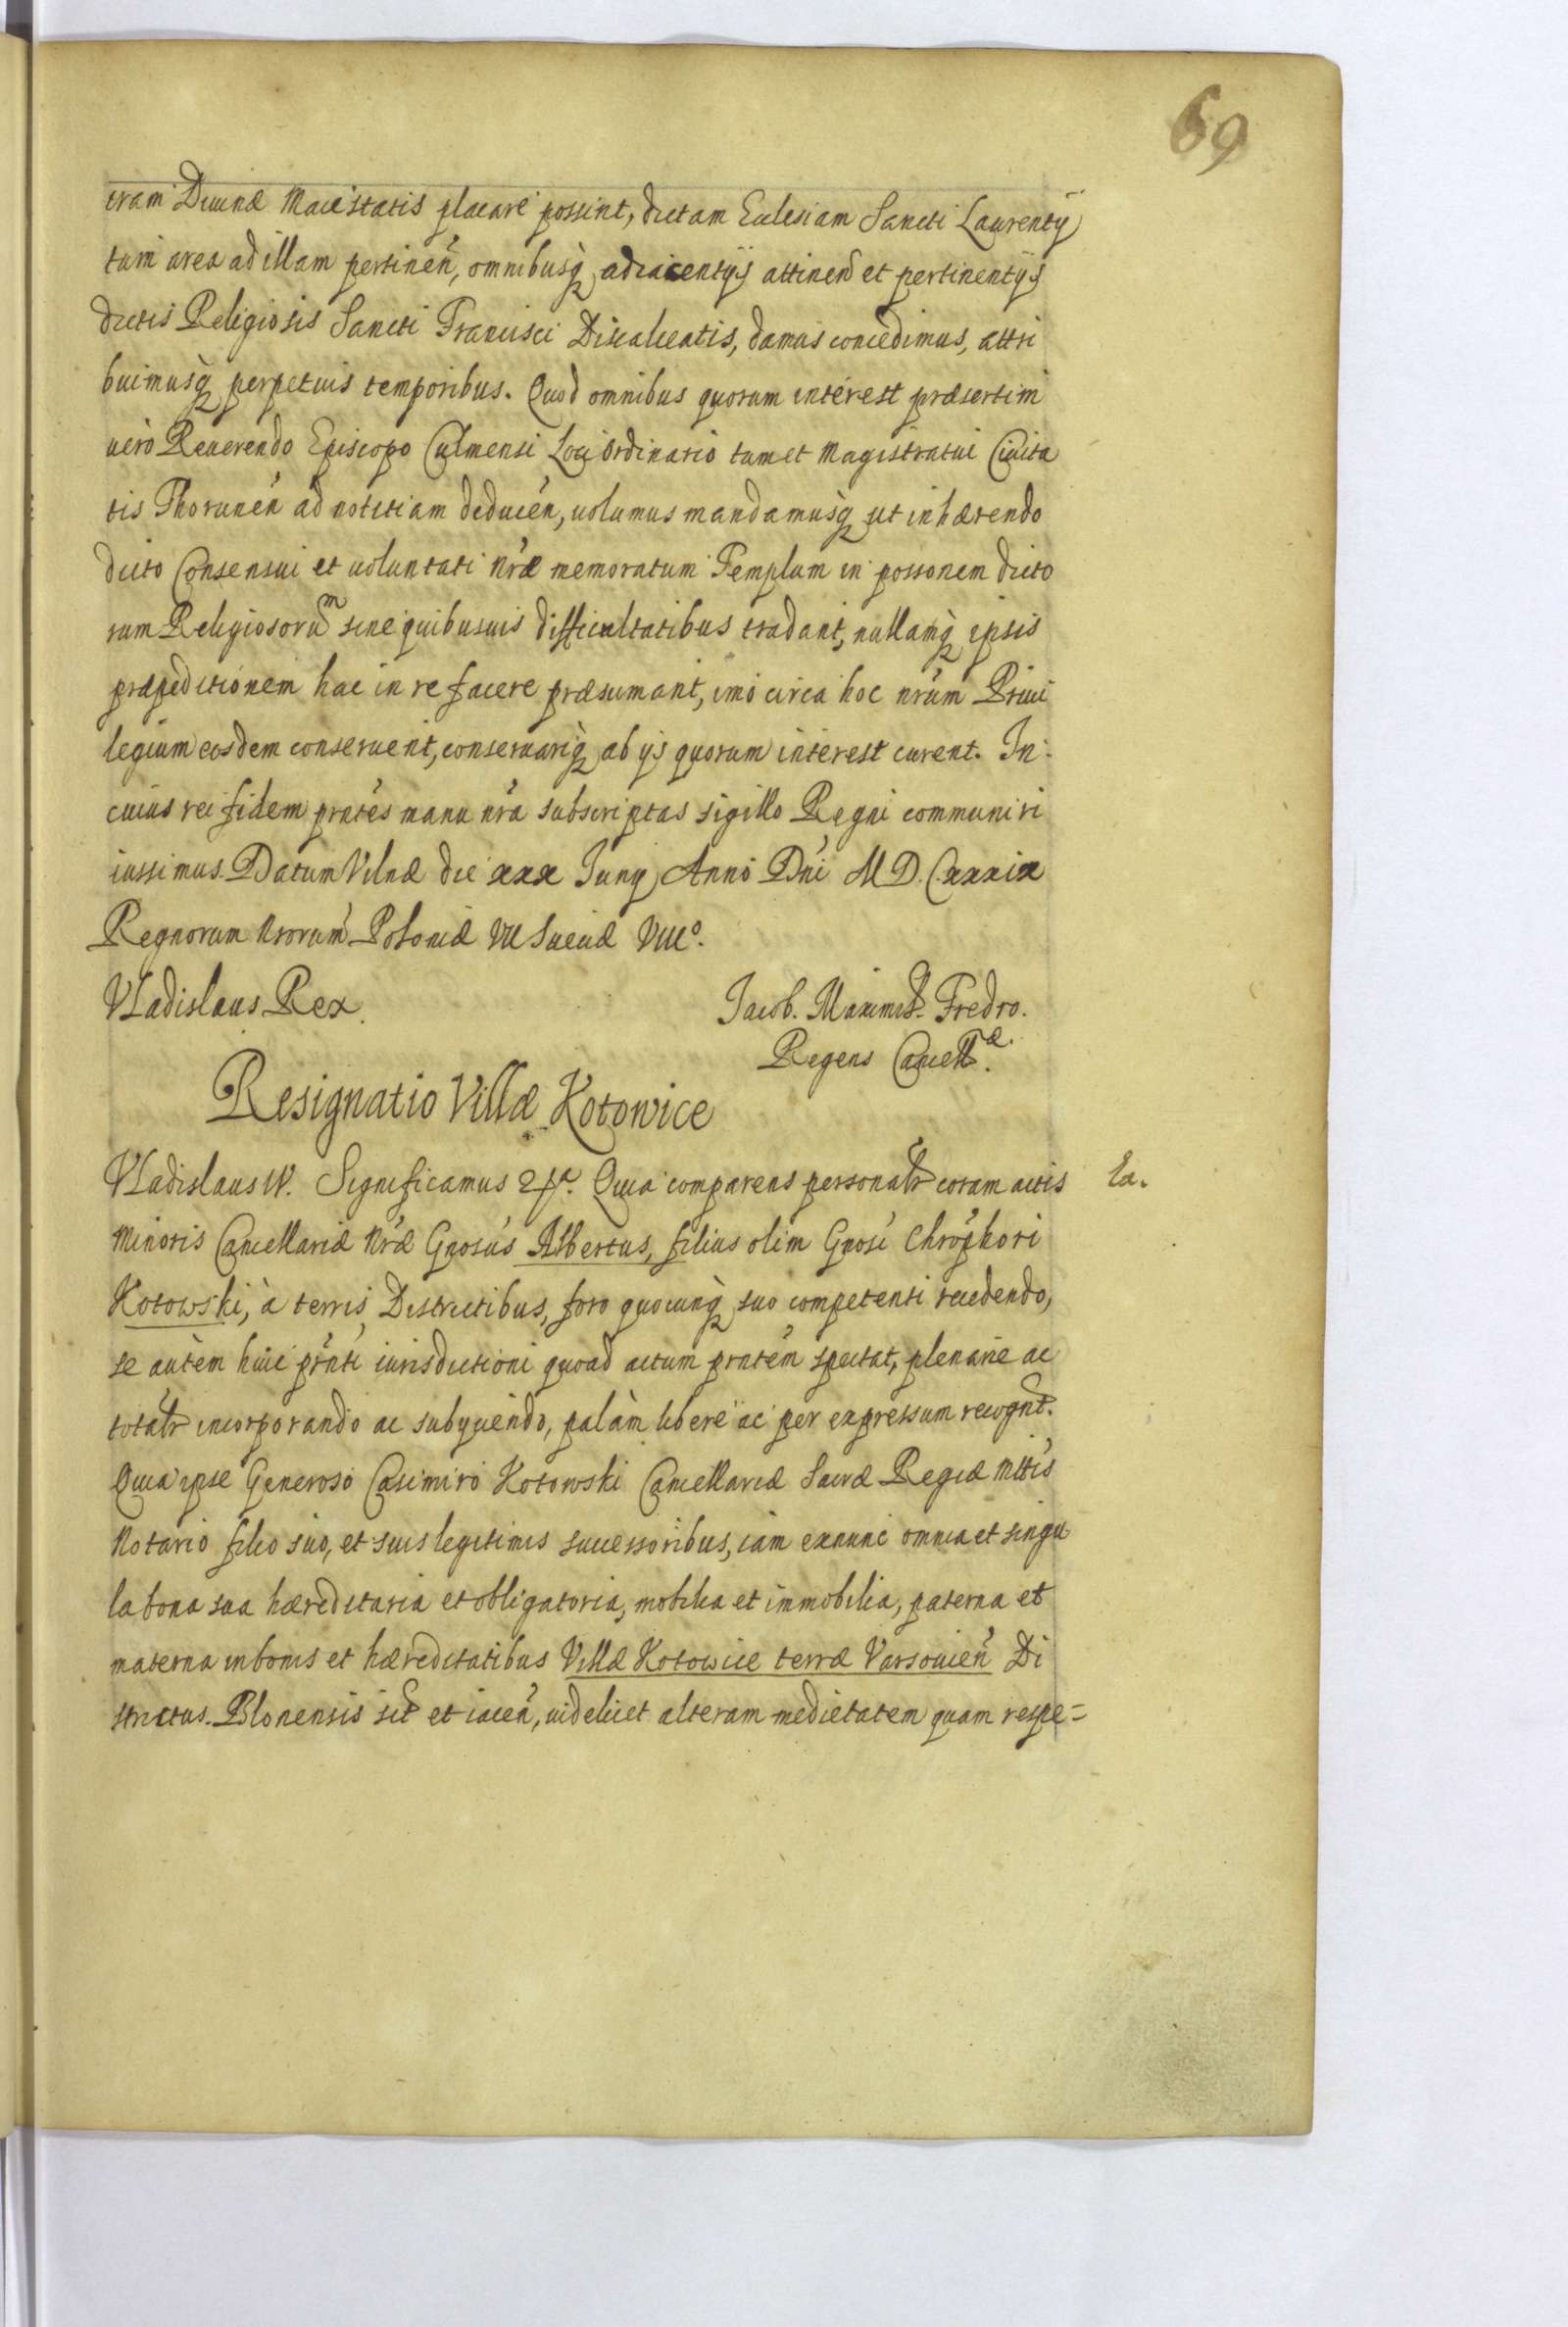 69
iram Diuinæ Maiestatis placare possint, dictam Ecclesiam Sancti Laurentÿ
tum area ad illam pertineñ, omnibusq̀ adiacentÿs attineñ et pertinentÿs
dictis Religiosis Sancti Francisci Discalceatis, damus concedimus, attri
buimusq̀ perpetuis temporibus. Quod omnibus quorum interest præsertim
uero Reuerendo Episcopo Culmensi Loci Ordinario tum et Magistratui Ciuita
tis Thoruneñ ad notitiam deduceñ, uolumus mandamusq̀ ut inhærendo
dicto Consensui et uoluntati nr̃æ memoratum Templum in possonem dicto
rum Religiosorum sine quibusuis difficultatibus tradant, nullamq̀ ipsis
præpeditionem hac in re facere præsumant, imo circa hoc nr̃um Priui
legium eosdem conseruent, conseruariq̀ ab ÿs quorum interest curent. In
cuius rei fidem prñtes manu nr̃a subscriptas sigillo Regni communiri
iussimus. Datum Vilnæ die xxx Iunÿ Anno Dñi M D. C. xxxix
Regnorum Nrorum Poloniæ VII Sueciæ VIIIº.
Vladislaus Rex.
Jacob. Maximil. Fredro.
Regens Cancell.æ
Resignatio Villæ Kotowice
Vladislaus IV. Significamus &c. Quia comparens personalr coram actis
Ea.
Minoris Cancellariæ Nr̃æ Gnosus Albertus, filius olim Gnosi Chrophori
Kotowski, à terris, Districtibus, foro quocunq̀ suo competenti recedendo,
se autèm huic prñti iurisdictioni quoad actum prñtem spectat, plenarie ac
totalr incorporando ac subÿciendo, palàm libere ac per expressum recognt.
Quia ipse Generoso Casimiro Kotowski Cancellariæ Sacræ Regiæ Mttis
Notario filio suo, et suis legitimis successoribus, iam exnunc omnia et singu
la bona sua hæreditaria et obligatoria, mobilia et immobilia, paterna et
materna in bonis et hæreditatibus Villæ Kotowice terræ Varsouieñ Di
strictus Blonensis sit et iaceñ, uidelicet alteram medietatem quam respe=